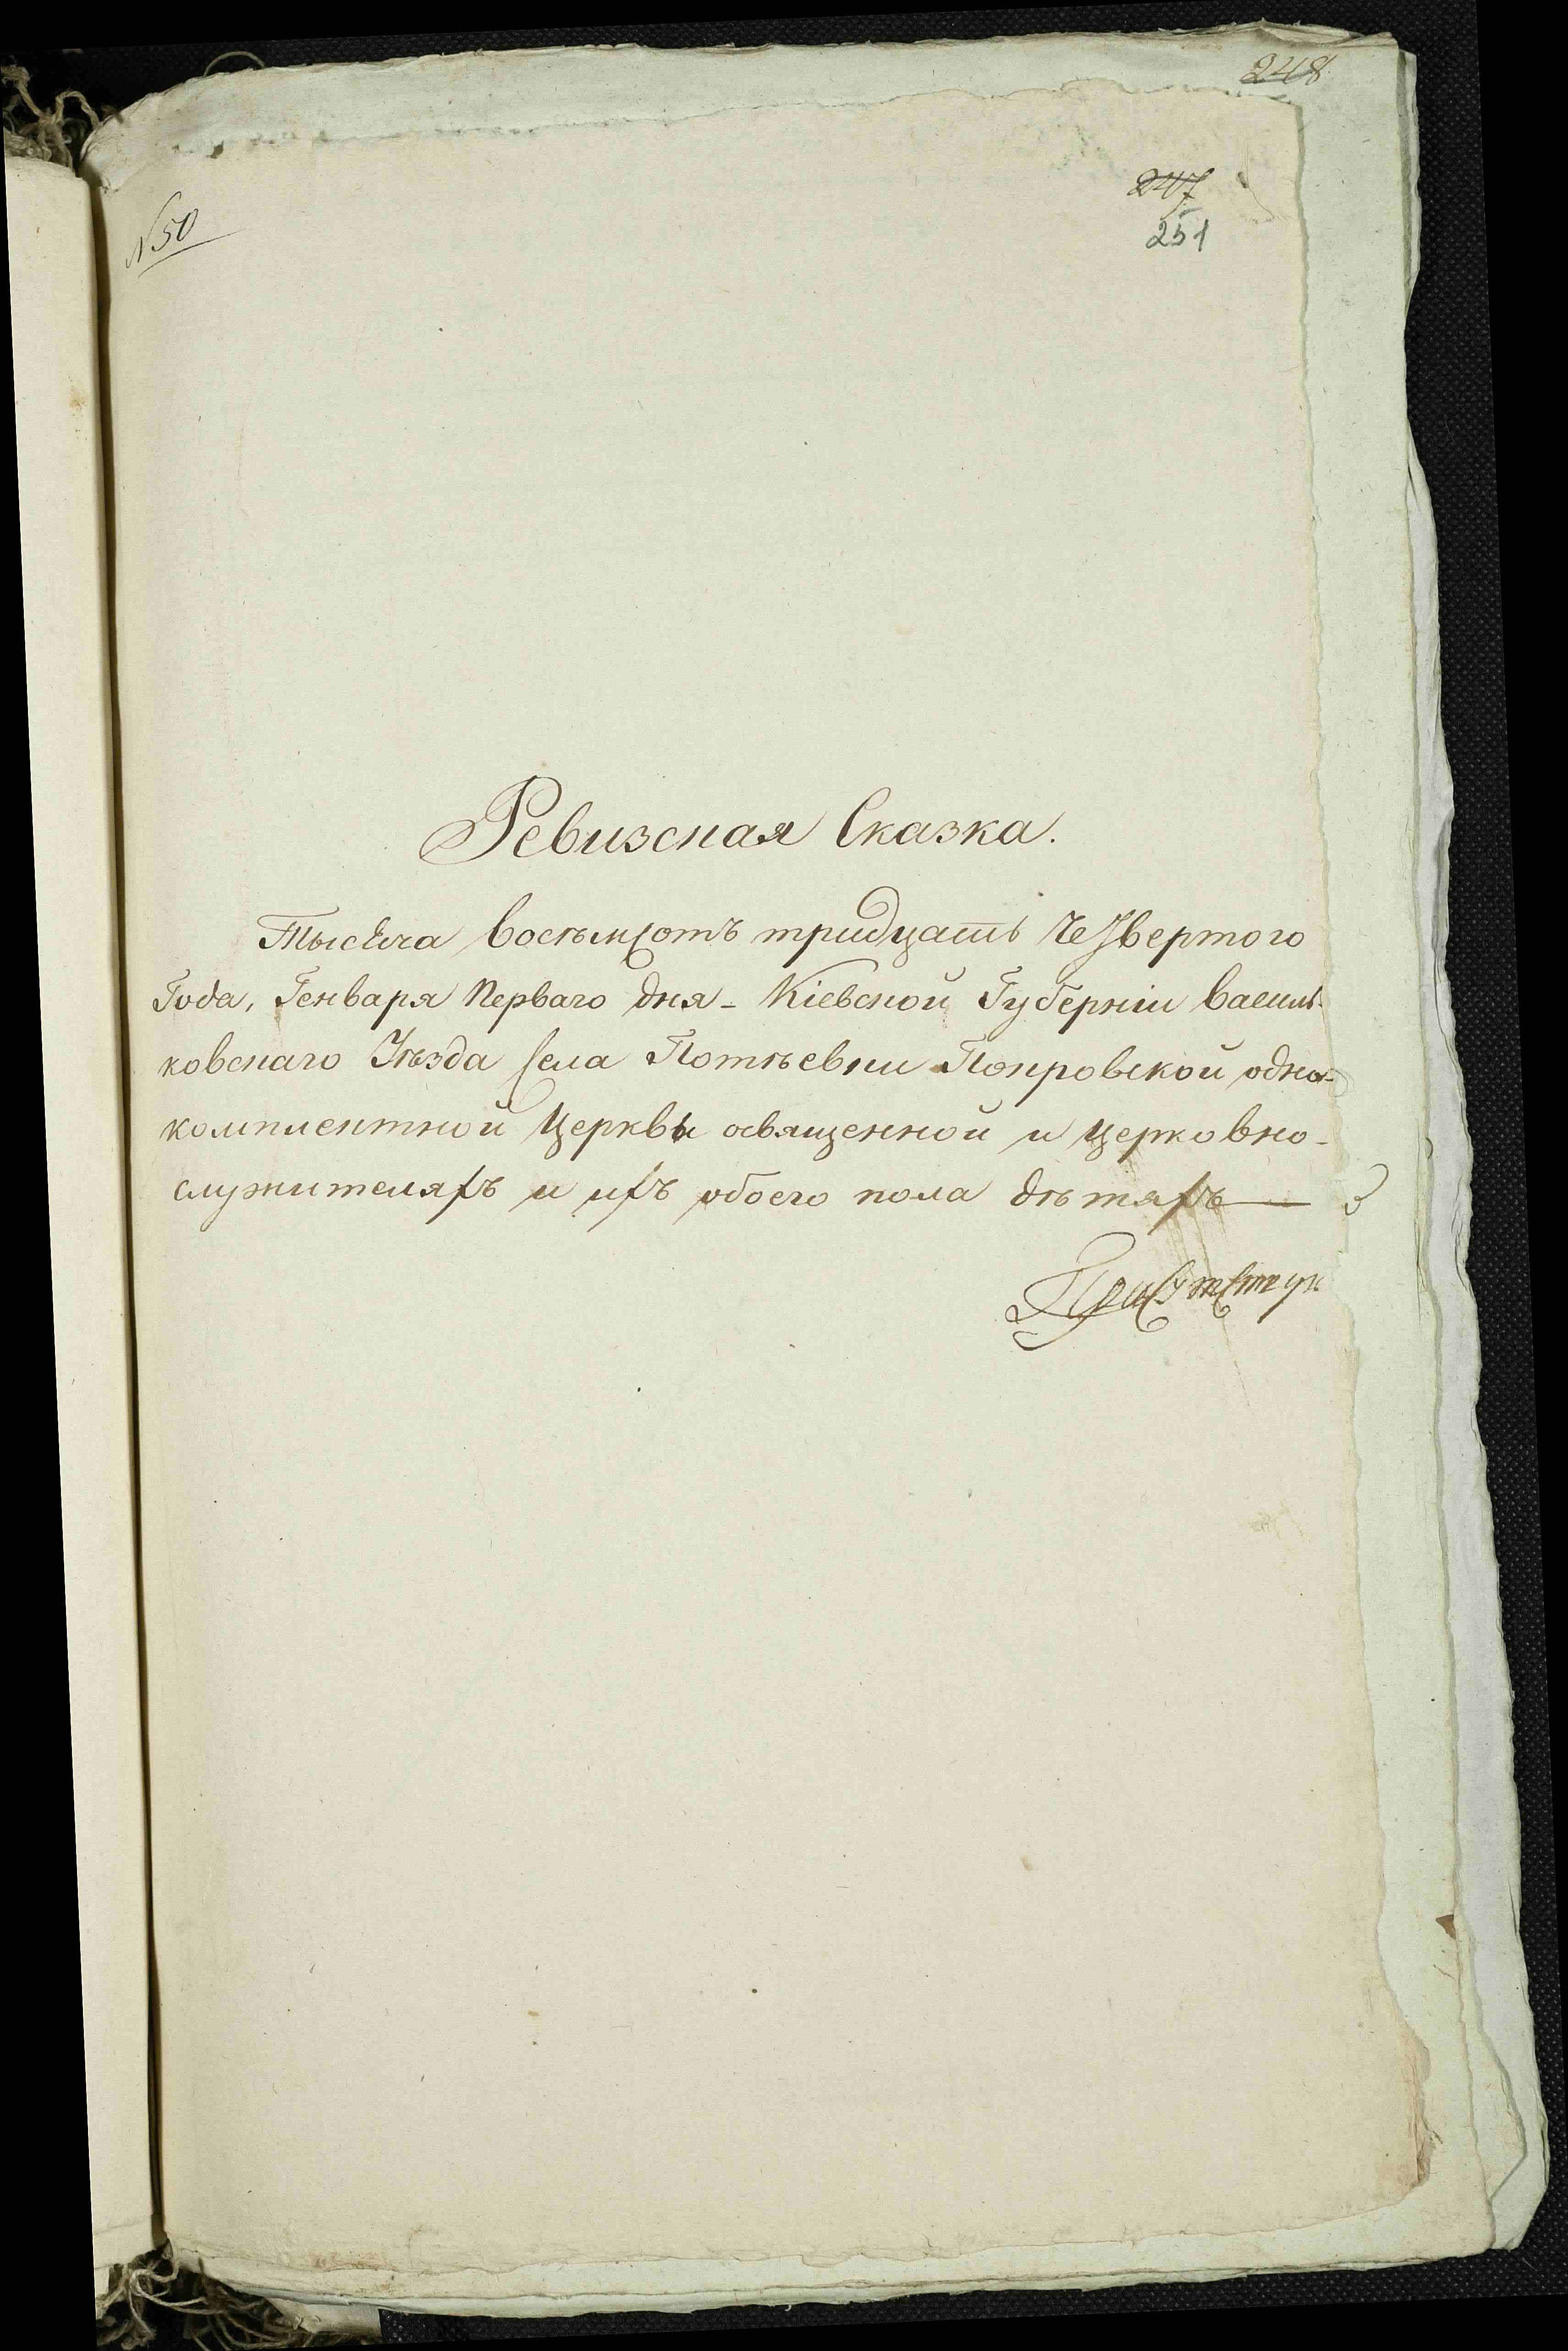 248
247
251
N 50
Ревизская Сказка.
Тысяча восѣмсотъ тридцать Четвертого
Года, Генваря Перваго дня - Кіевской Губерніи Василь-
ковскаго Уѣзда села Потѣевки Покровской одно-
комплектной Церкви освященной и церковно-
служителяхъ и ихъ обоего пола дѣтяхъ